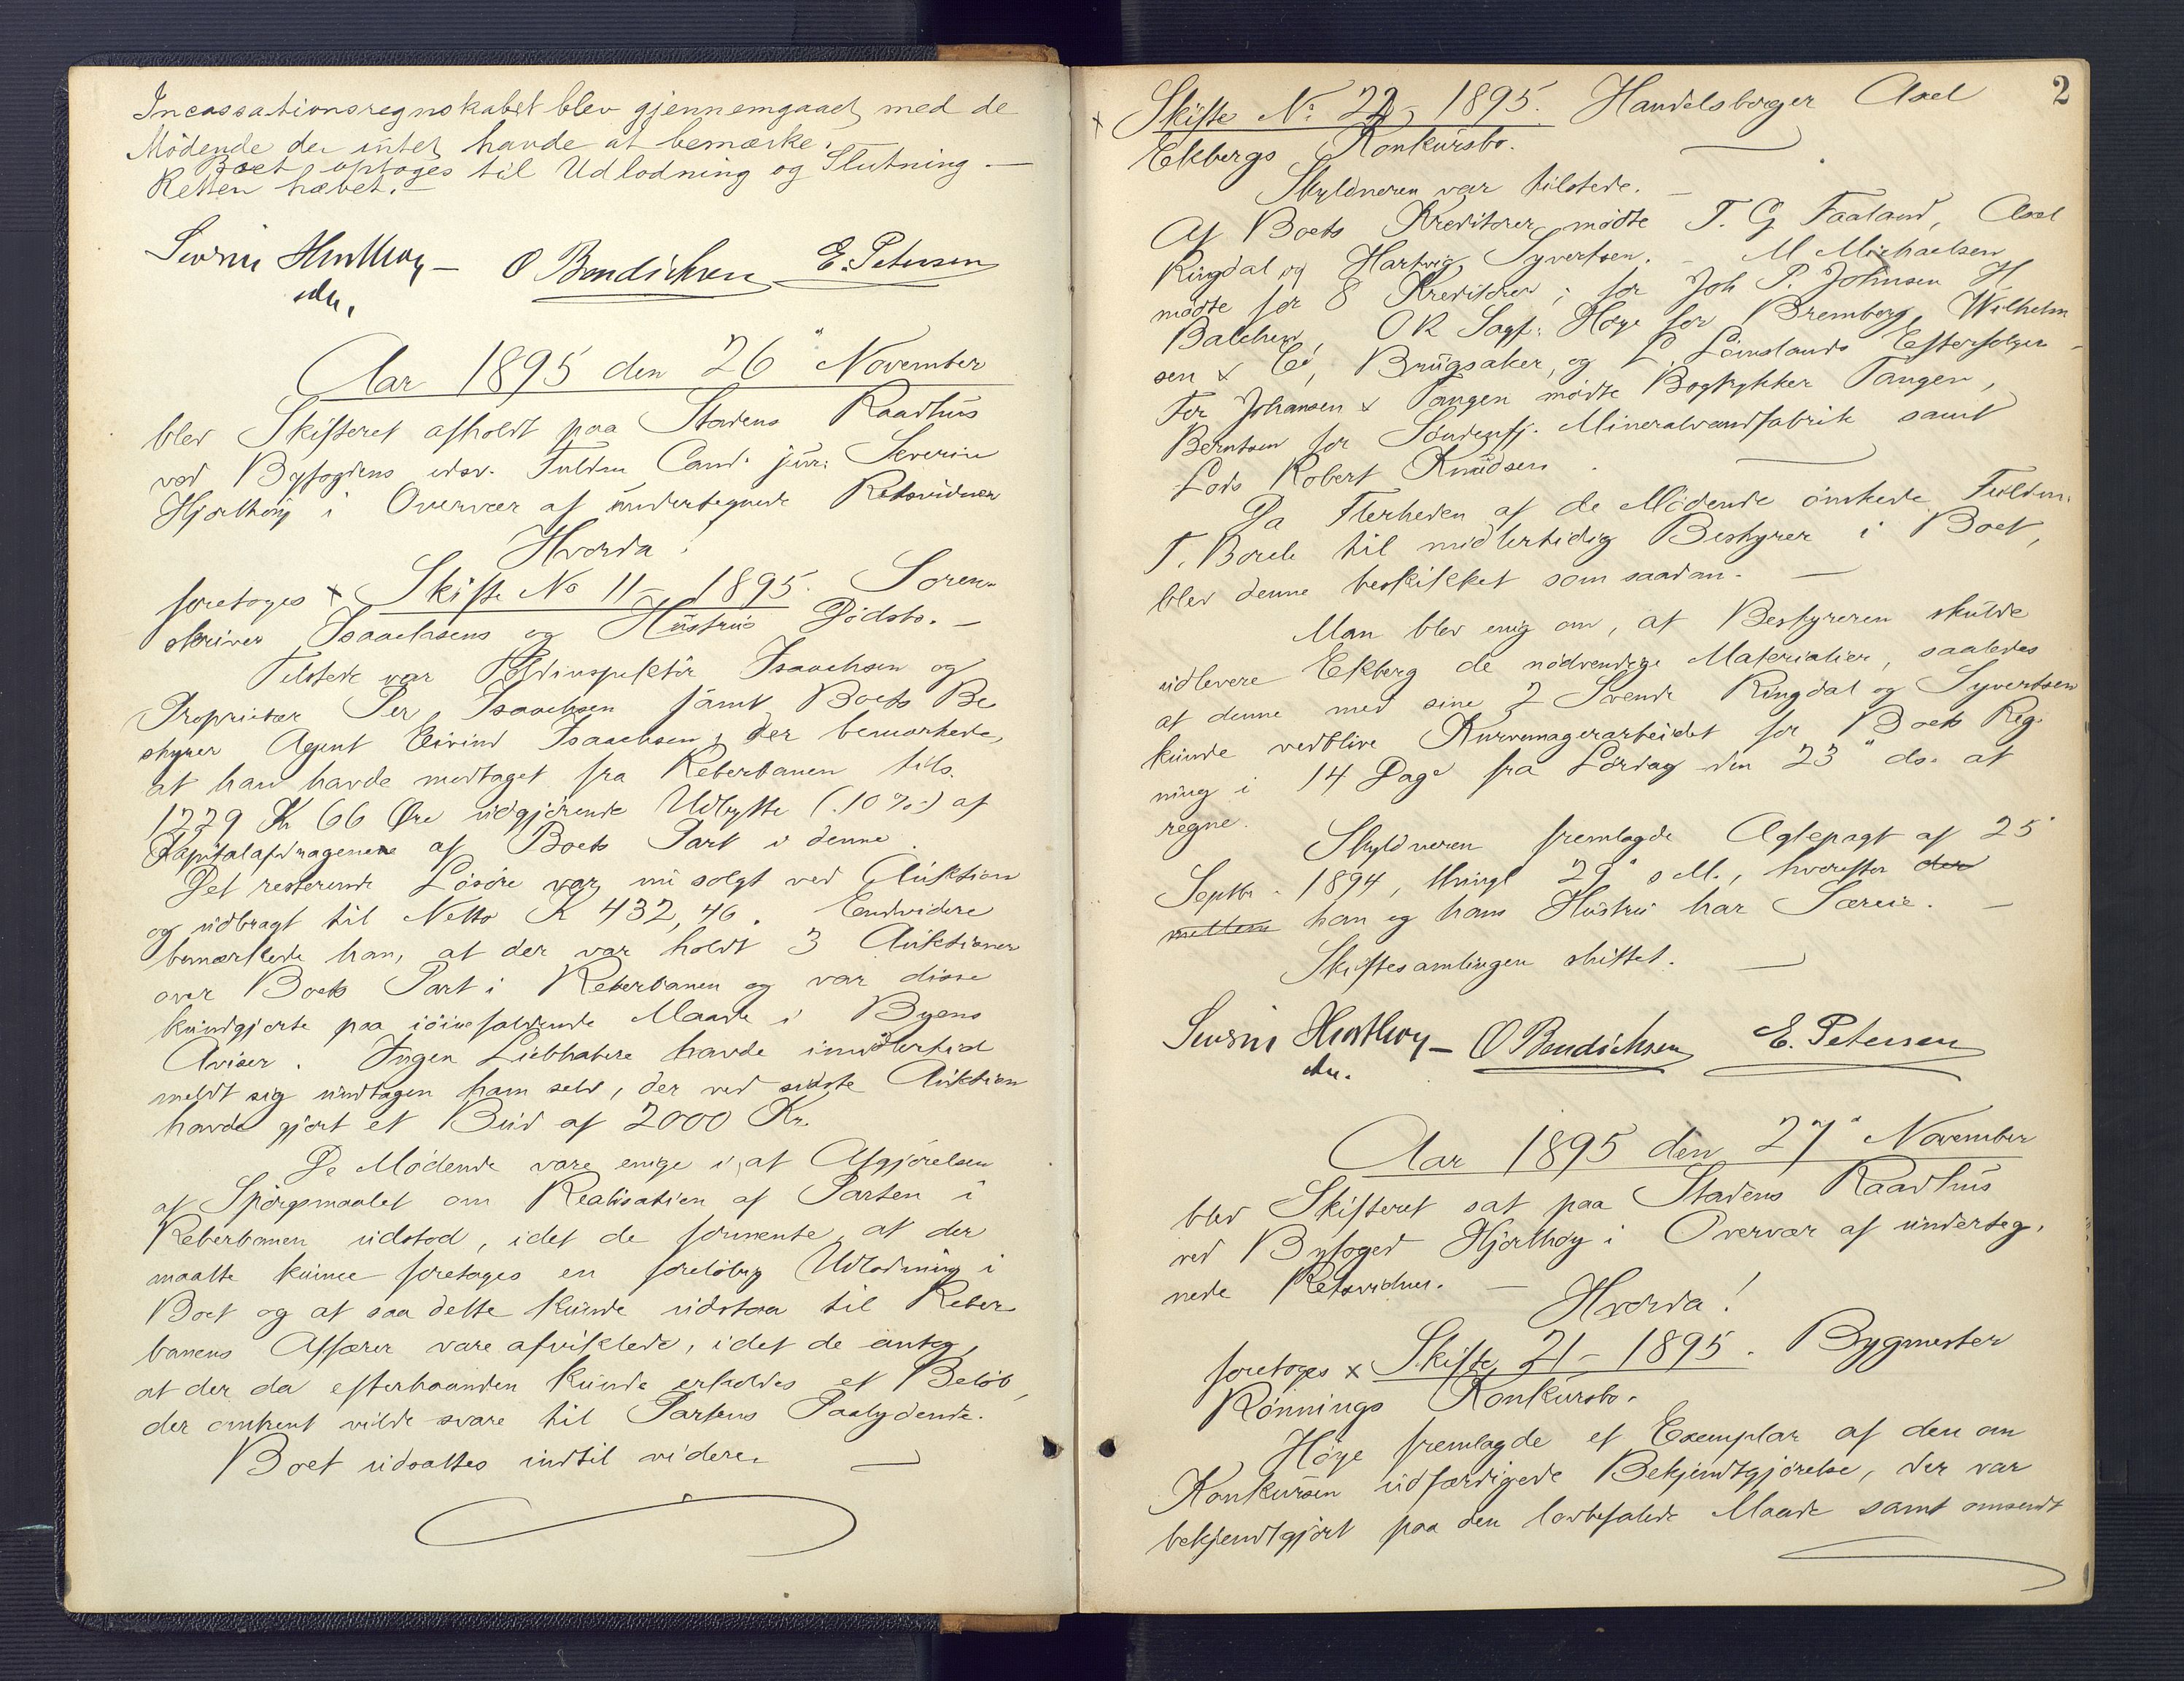 Incassationsregnskabet blev gjennemgaaet med de
Mödende der intet havde at bemærke.
Boet optoges til Udlodning og Slutning —
Retten hævet. —
Severin Hiorthøy — O Bendichsen E. Petersen
edsv.
Aar 1895 den 26" November
blev Skifteret afholdt paa Stadens Raadhus
ved Byfogdens edsv. Fuldm Cand. jur. Severin
Hjorthøy i Overvær af undertegnede Retsvidner
Hvorda!
foretoges x Skifte No 11 – 1895. Soren-
skriver Isaachsens og Hustrus Dödsbo. —
Tilstede var Toldinspektör Isaachsen og
Proprietær Per Isaachsen samt Boets Be
styrer Agent Eivind Isaachsen, der bemærkede,
at han havde modtaget fra Reberbanen tils.
1229 Kr 66 Øre udgjörende Udbytte (10%) af
Kapitalafdragene af Boets Part i denne.
Det resterende Lösöre var nu solgt ved Auktion
og udbragt til Netto K 432,46. Endvidere
bemærkede han, at der var holdt 3 Auktioner
over Boets Part i Reberbanen og var disse
kundgjorte paa iöinefaldende Maade i Byens
Aviser. Ingen Liebhabere havde imidlertid
meldt sig undtagen ham selv, der ved sidste Auktion
havde gjort et Bud af 2000 Kr.
De Mödende vare enige i, at Afgjörelsen
af Spörgsmaalet om Realisation af Parten i
Reberbanen udstod, idet de formente at der
maatte kunne foretages en forelöbig Udlodning i
Boet og at saa dette kunde udstaa til Reber
banens Affærer vare afviklede, idet de antog,
at der da efterhaanden kunde erholdes et Belöb,
der omtrent vilde svare til Partens Paalydende.
Boet udsattes indtil videre. —
2
x Skifte No 22 – 1895. Handelsborger Axel
Ekbergs Konkursbo. —
Skyldneren var tilstede. —
Af Boets Kreditorer mödte T. G. Faaland, Axel
Ringdal og Hartvig Syvertsen. — M Michaelsen
mödte for 8 Kreditorer; for Joh P. Johnsen H
Balchen, O R Sagf. Höye for Bremberg, Wilhelm
sen & Co, Brugsaker, og L. Lömslands Efterfölger —
For Johansen & Tangen mödte Bogtrykker Tangen,
Berntsen for Söndenfj. Mineralvandfabrik samt
Lods Robert Knudsen. —
Da Flerheden af de Mödende önskede Fuldm.
T. Borch til midlertidig Bestyrer i Boet,
blev denne beskikket som saadan. —
Man blev enig om, at Bestyreren skulde
udlevere Ekberg de nödvendige Materialier, saaledes
at denne med sine 2 Svende Ringdal og Syvertsen
kunde vedblive Kurvmagerarbeidet for Boets Reg-
ning i 14 Dage fra Lördag den 23" ds. at
regne.
Skyldneren fremlagde Ægtepagt af 25
Septbr. 1894, thingl 29" s M., hvorefter der
mellem han og hans Hustru har Særeie. —
Skiftesamlingen sluttet. —
Severin Hiorthøy — O Bendichsen E. Petersen
edsv.
Aar 1895 den 27" November
blev Skifteret sat paa Stadens Raadhus
ved Byfoged Hjorthøy i Overvær af underteg,
nede Retsvidner. —
Hvorda!
foretoges x Skifte 21 – 1895. Bygmester
Rönnings Konkursbo.
Höye fremlagde et Exemplar af den om
Konkursen udfærdigede Bekjendtgjörelse, der var
bekjendtgjort paa den lovbefalede Maade samt omsendt